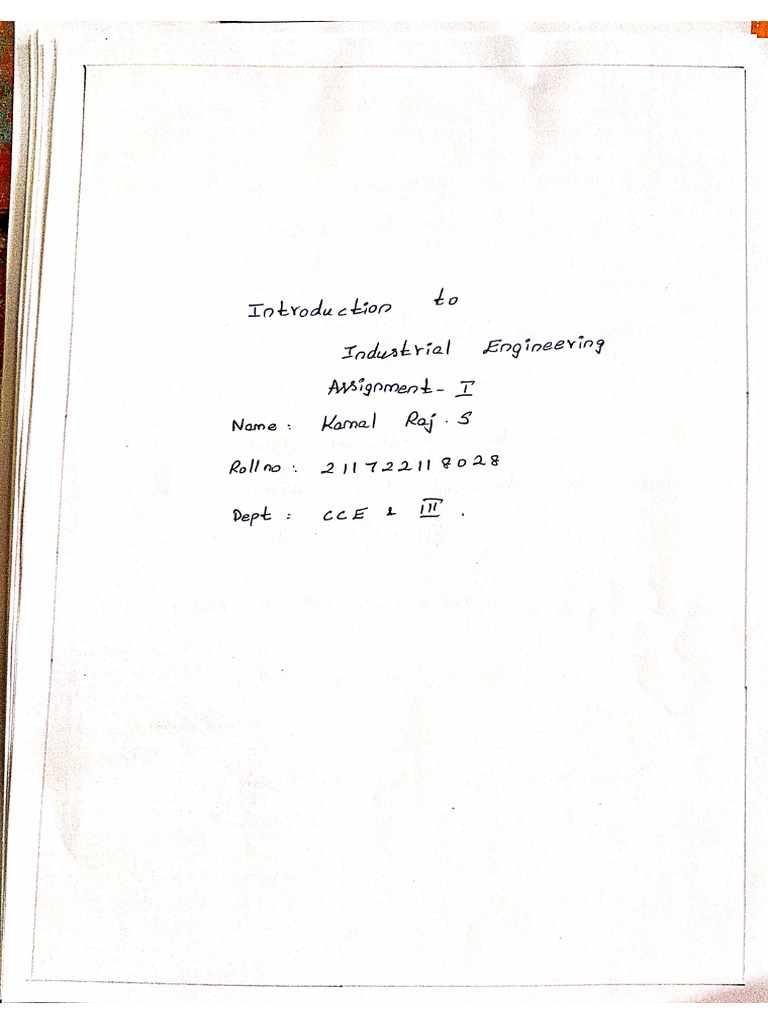 Introduction to
Industrial Engineering
Assignment - I
Name : Kamal Raj . S
Roll no : 211722118028
Dept : CCE & III .